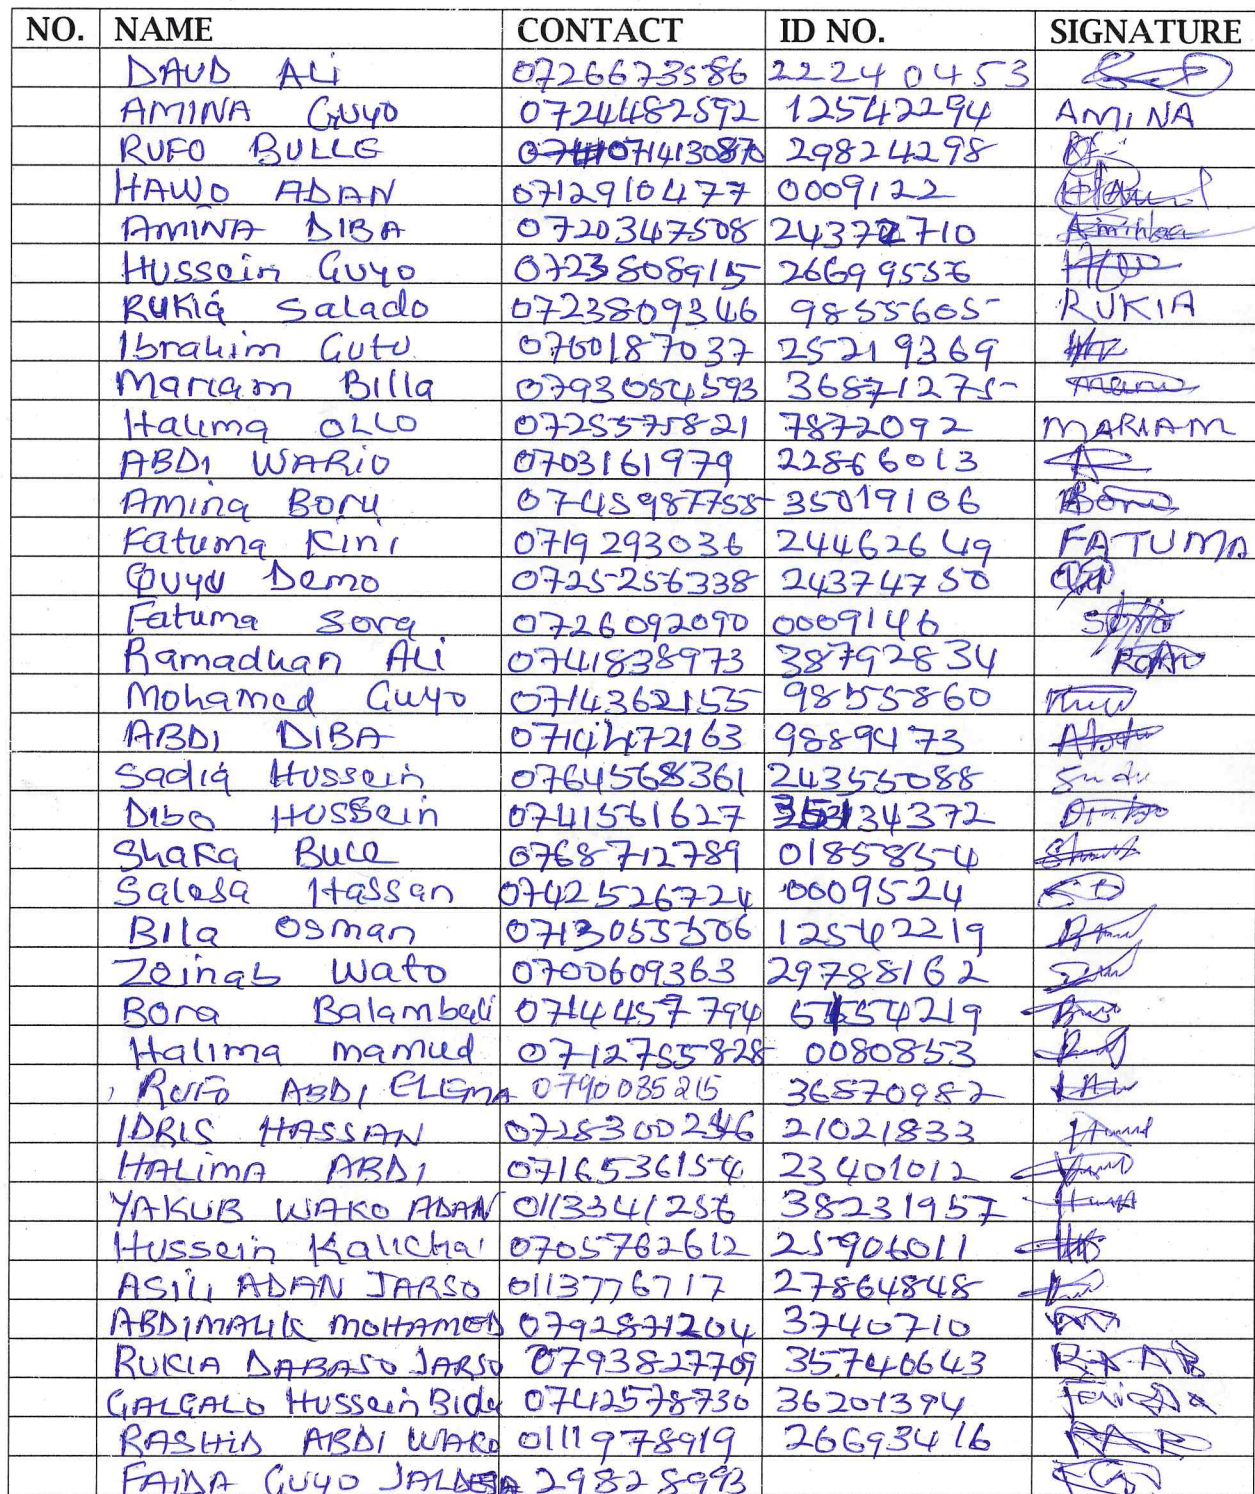 NO. NAME CONTACT ID NO. SIGNATURE
DAUD ALi 0726673586 22240453
AMINA GUYO 0724482592 12542294 AMINA
RUFO BULLE 0714130870 29824298
HAWO ADAN 0712910477 0009122
AMINA DIBA 0720347508 24372710
Hussein Guyo 0723808915 26699556
RUKia Salado 0723809346 9855605 RUKIA
Ibrahim Guto 0760187037 25219369
Mariam Billa 0793054593 36871275
Halima OLLO 0725575821 7872092 MARIAM
ABDI WARIO 0703161979 22866013
Amina Boru 0745987755 35019106
Fatuma Kini 0719293036 24462649 FATUMA
Quyo Demo 0725256338 24374750
Fatuma Sora 0726092090 0009146
Ramadhan ALi 0741838973 38792834
Mohamed Guyo 0714362155 9855860
ABDI DIBA 0714472163 9889473
Sadia Hussein 0764568361 24355088
Dibo HUSSein 0741561627 34372
Shaka 0768712789 0185854
Salesa Hassan 0742526724 0009524
Bila Osman 0713055506 12542219
Zeinab Wato 0700609363 29788162
Bora 0714457794 54219
Halima mamud 0712755828 0080853
RUFO ABDI ELEMA 0790035215 36570982
IDRIS HASSAN 0728300246 21021833
HALIMA ABDI 0716536154 23401012
YAKUB WAKO ADAN 0113341256 38231957
Hussein Kalicha 0705762612 25906011
ASILI ADAN JARSO 0113776717 27864848
ABDIMALIK MOHAMED 0792871204 3740710
RUKIA DABASO JARSO 0793827709 35740643
GALGALO Hussein 0742578730 36201394
RASHID ABDI WAKO 0111978919 26693416
FAIDA GUYO JALDESA 29828993